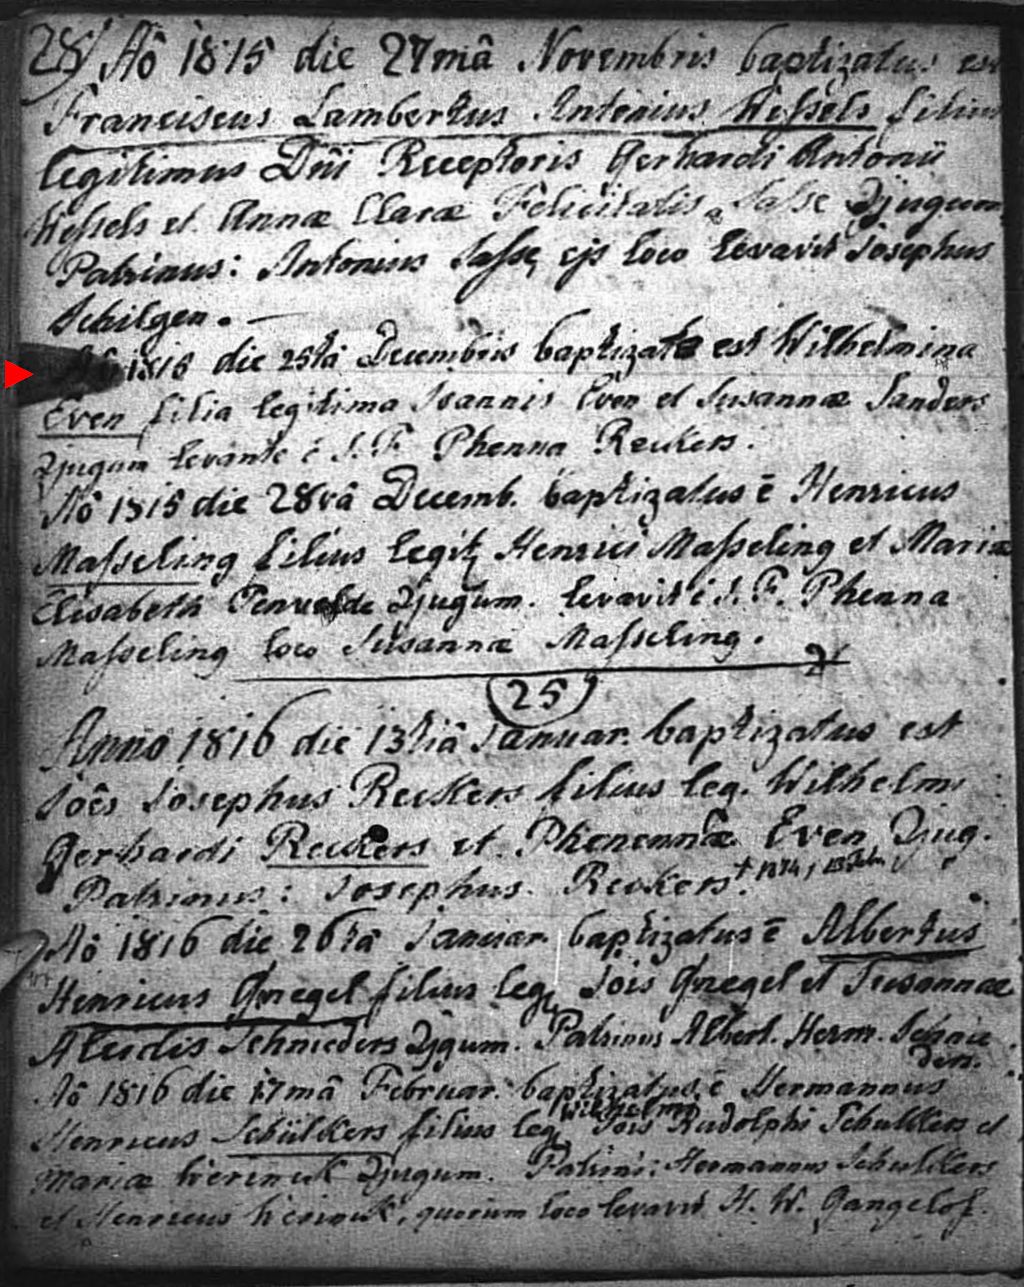 28/ Aô 1815 die 27mâ Novembris baptizatus est
Franciscus Lambertus Antonius Wessels filius
legitimus Dñi Receptoris Gerhardi Antonii
Wessels et Annæ Claræ Felicitatis Sasse Qjugum
Patrinus: Antonius Sasse ejs loco levavit Josephus
Schilgen. —
Aô 1815 die 25tâ Decembris baptizata est Wilhelmina
Even filia legitima Joannis Even et Susannæ Sanders
Qjugum levante é S. F. Phenna Reckers.
Aô 1815 die 28vâ Decemb. baptizatus ē Henricus
Masseling filius legit Henrici Masseling et Mariæ
Elisabeth Qjugum. levavit é S. F. Phenna
Masseling loco Susannæ Masseling.
25
Anno 1816 die 13tiâ Januar. baptizatus est
Joês Josephus Reckers filius leg. Wilhelmi
Gerhardi Reckers et Phenennæ Even Qjug.
Patrinus: Josephus Reckers.
Aô 1816 die 26tâ Januar. baptizatus ē Albertus
Henricus Gnegel filius leg. Jois Gnegel et Susannæ
Aleidis Schnieders Qjgum. Patrinus Albert. Herm. Schnie
ders.
Aô 1816 die 17mâ Februar. baptizatus ē Hermannus
Wilhelmus
Henricus Schülkers filius leg. Jois Rudolphi Schulkers et
Mariæ Werinck Qjugum. Patrini: Hermannus Schulkers
et Henricus Werinck, quorum loco levavit H. W. Gangelof.